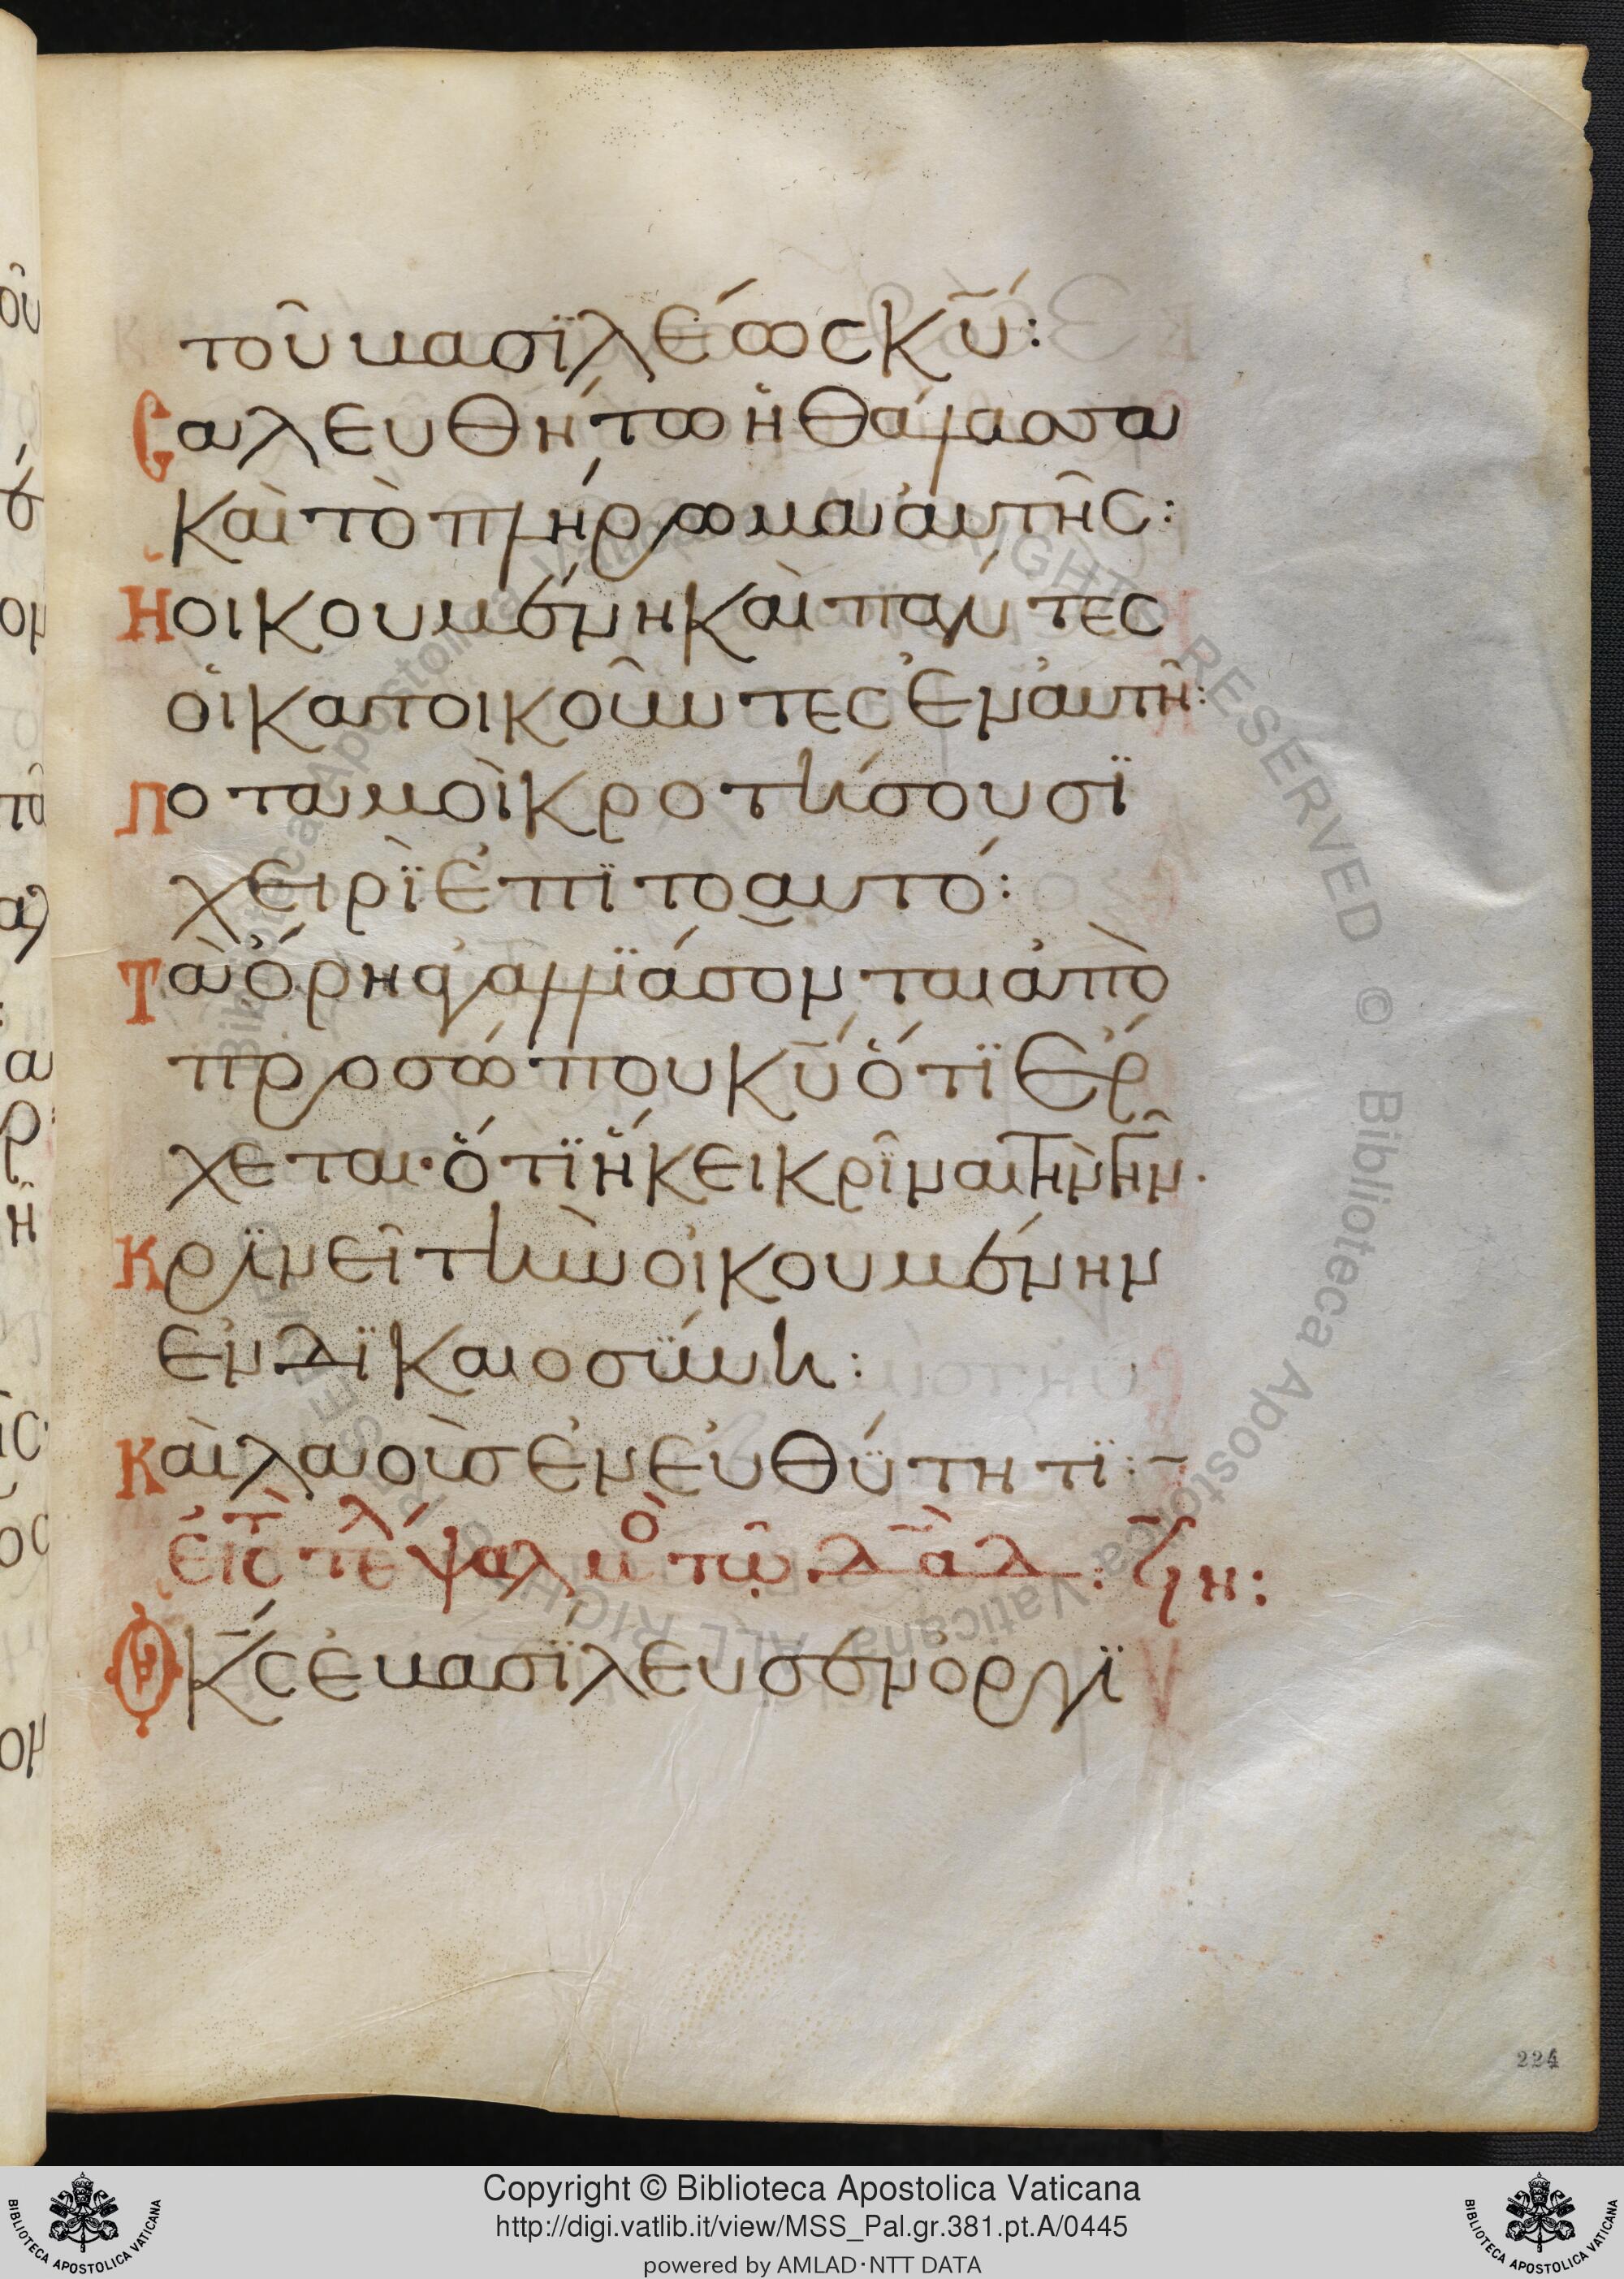 τοῦ βασϊλέως κ̅υ̅:
Σαλευθήτω ἡ θάλασσα
καὶ τὸ πλήρωμα ἀυτῆς:
Ἡ οικουμένη καὶ πάντες
οἱ κατοικοῦντες ἐν ἀυτῆ:
Ποταμοὶ κροτήσουσϊ
χειρὶ ἐπϊτοαυτό:
Τὰ ὄρη ἀγαλλϊάσονται ἀπὸ
προσώπου κ̅υ̅ ὅτϊ ἔρ
χεται· ὅτϊ ἥκει κρῖναι τὴν γῆν·
Κρϊνεῖ τὴν οἰκουμένην
ἐν δϊκαιοσύνη:
Καὶ λαοὺσ ἐν ἐυθύτητϊ:~
εἰς τὸ τέλ ψαλμὸ τῶ δᾱδ: ϟη:
Ὁ κ̅ς̅ ἐβασϊλευσεν ὀργϊ
Copyright © Biblioteca Apostolica Vaticana
http://digi.vatlib.it/view/MSS_Pal.gr.381.pt.A/0445
powered by AMLAD·NTT DATA
BIBLIOTECA APOSTOLICA VATICANA
BIBLIOTECA APOSTOLICA VATICANA
224